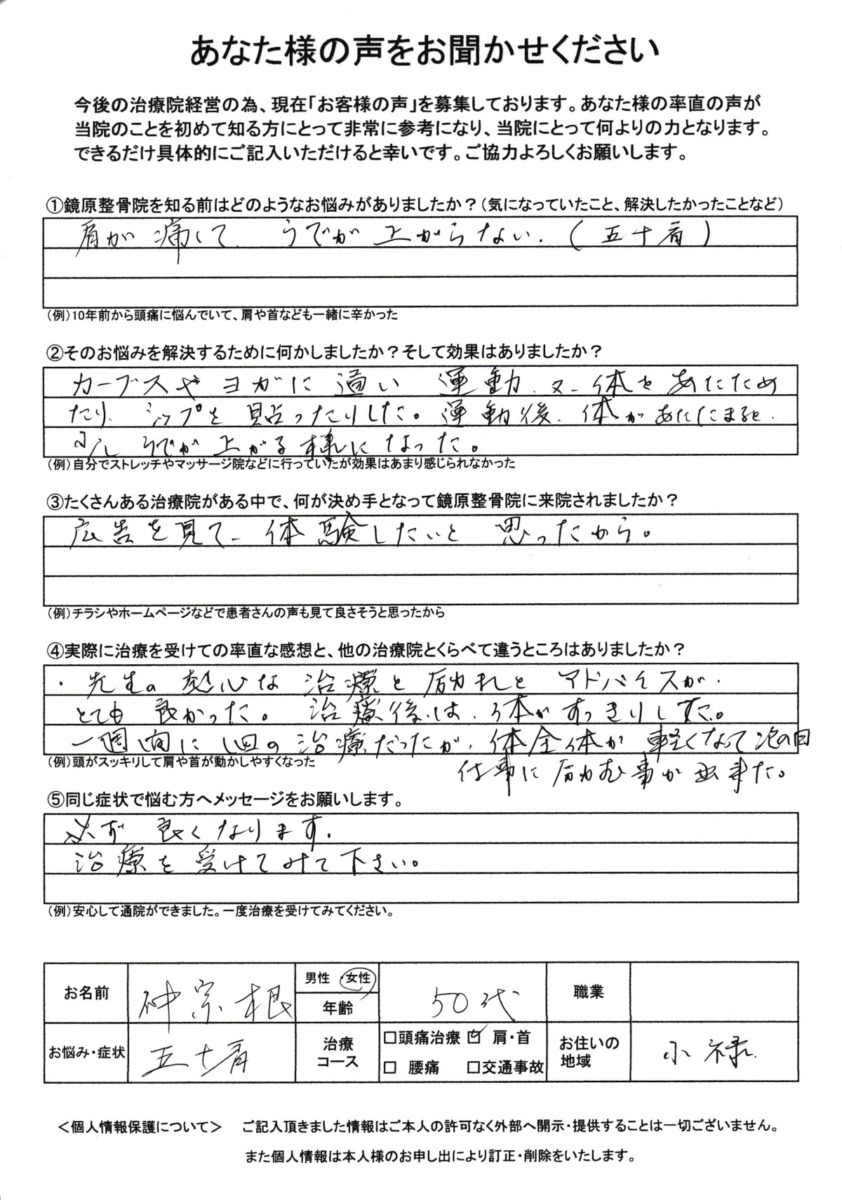 あなた様の声をお聞かせください
今後の治療院経営の為、現在「お客様の声」を募集しております。あなた様の率直の声が
当院のことを初めて知る方にとって非常に参考になり、当院にとって何よりの力となります。
できるだけ具体的にご記入いただけると幸いです。ご協力よろしくお願いします。
①鏡原整骨院を知る前はどのようなお悩みがありましたか？（気になっていたこと、解決したかったことなど）
肩が痛くて、うでが上がらない.（五十肩）
（例）10年前から頭痛に悩んでいて、肩や首なども一緒に辛かった
②そのお悩みを解決するために何かしましたか？そして効果はありましたか？
カーブスやヨガに通い 運動、又、体をあたため
たり、シップを貼ったりした。運動後、体があたたまると、
少しうでが上がる様になった。
（例）自分でストレッチやマッサージ院などに行っていたが効果はあまり感じられなかった
③たくさんある治療院がある中で、何が決め手となって鏡原整骨院に来院されましたか？
広告を見て、体験したいと思ったから。
（例）チラシやホームページなどで患者さんの声も見て良さそうと思ったから
④実際に治療を受けての率直な感想と、他の治療院とくらべて違うところはありましたか？
・先生の 心な 治療と 励れと アドバイスが、
とても 良かった。治療後は、体がすっきりした。
一週間に 回の治療だったが、体全体が 軽くなって次の日
（例）頭がスッキリして肩や首が動かしやすくなった
仕事に励む事が出来た。
⑤同じ症状で悩む方へメッセージをお願いします。
必ず 良くなります.
治療を受けてみて下さい。
（例）安心して通院ができました。一度治療を受けてみてください。
お名前 仲宗根 男性 女性 年齢 50代 職業
お悩み・症状 五十肩 治療コース □頭痛治療 ☑ 肩・首 □ 腰痛 □交通事故 お住いの地域 小禄
＜個人情報保護について＞ ご記入頂きました情報はご本人の許可なく外部へ開示・提供することは一切ございません。
また個人情報は本人様のお申し出により訂正・削除をいたします。